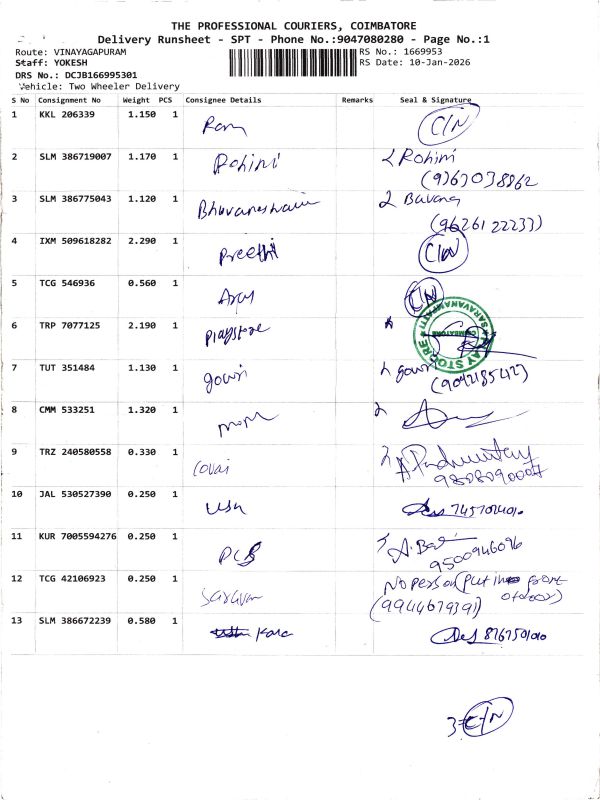 THE PROFESSIONAL COURIERS, COIMBATORE
Delivery Runsheet - SPT - Phone No.:9047080280 - Page No.:1
Route: VINAYAGAPURAM RS No.: 1669953
Staff: YOKESH RS Date: 10-Jan-2026
DRS No.: DCJB166995301
Vehicle: Two Wheeler Delivery
S No Consignment No Weight PCS Consignee Details Remarks Seal & Signature
1 KKL 206339 1.150 1 Ram C/N
2 SLM 386719007 1.170 1 Rohini Rohini
(9363038862
3 SLM 386775043 1.120 1 Bhuvaneshwari Bavana
(9626122233)
4 IXM 509618282 2.290 1 Preethi C/N
5 TCG 546936 0.560 1 C/N
6 TRP 7077125 2.190 1 playstore
SARAVANAMPATTI
COIMBATORE
7 TUT 351484 1.130 1 gowri gowri
8 CMM 533251 1.320 1
9 TRZ 240580558 0.330 1 covai
10 JAL 530527390 0.250 1 usn
11 KUR 7005594276 0.250 1 A. Bas
9500946096
12 TCG 42106923 0.250 1 Saravan No person (put in front of door)
(9944679391)
13 SLM 386672239 0.580 1 Kara 8767501010
3 C/N